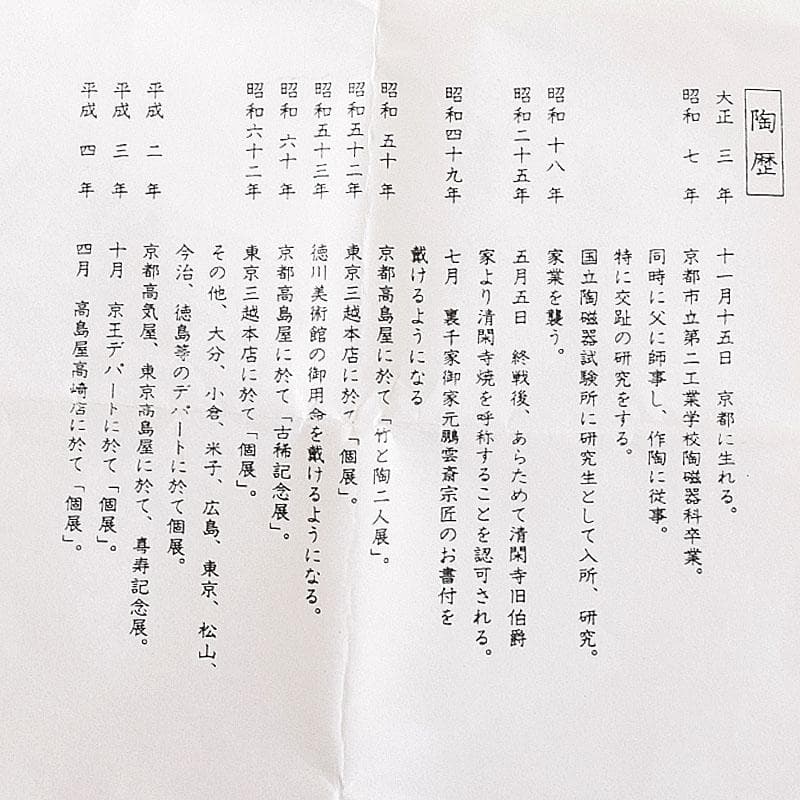 陶歴
大正 三 年 十一月十五日 京都に生れる。
昭和 七 年 京都市立第二工業学校陶磁器科卒業。
同時に父に師事し、作陶に従事。
特に交趾の研究をする。
国立陶磁器試験所に研究生として入所、研究。
昭和 十八 年 家業を襲う。
昭和二十五年 五月五日 終戦後、あらためて清閑寺旧伯爵
家より清閑寺焼を呼称することを認可される。
昭和四十九年 七月 裏千家御家元鵬雲斎宗匠のお書付を
戴けるようになる
昭和 五十 年 京都高島屋に於て「竹と陶二人展」。
昭和五十二年 東京三越本店に於て「個展」。
昭和五十三年 徳川美術館の御用命を戴けるようになる。
昭和 六十 年 京都高島屋に於て「古稀記念展」。
昭和六十二年 東京三越本店に於て「個展」。
その他、大分、小倉、米子、広島、東京、松山、
今治、徳島等のデパートにて個展。
平成 二 年 京都高気屋、東京高島屋に於て、喜寿記念展。
平成 三 年 十月 京王デパートに於て「個展」。
平成 四 年 四月 高島屋高崎店に於て「個展」。